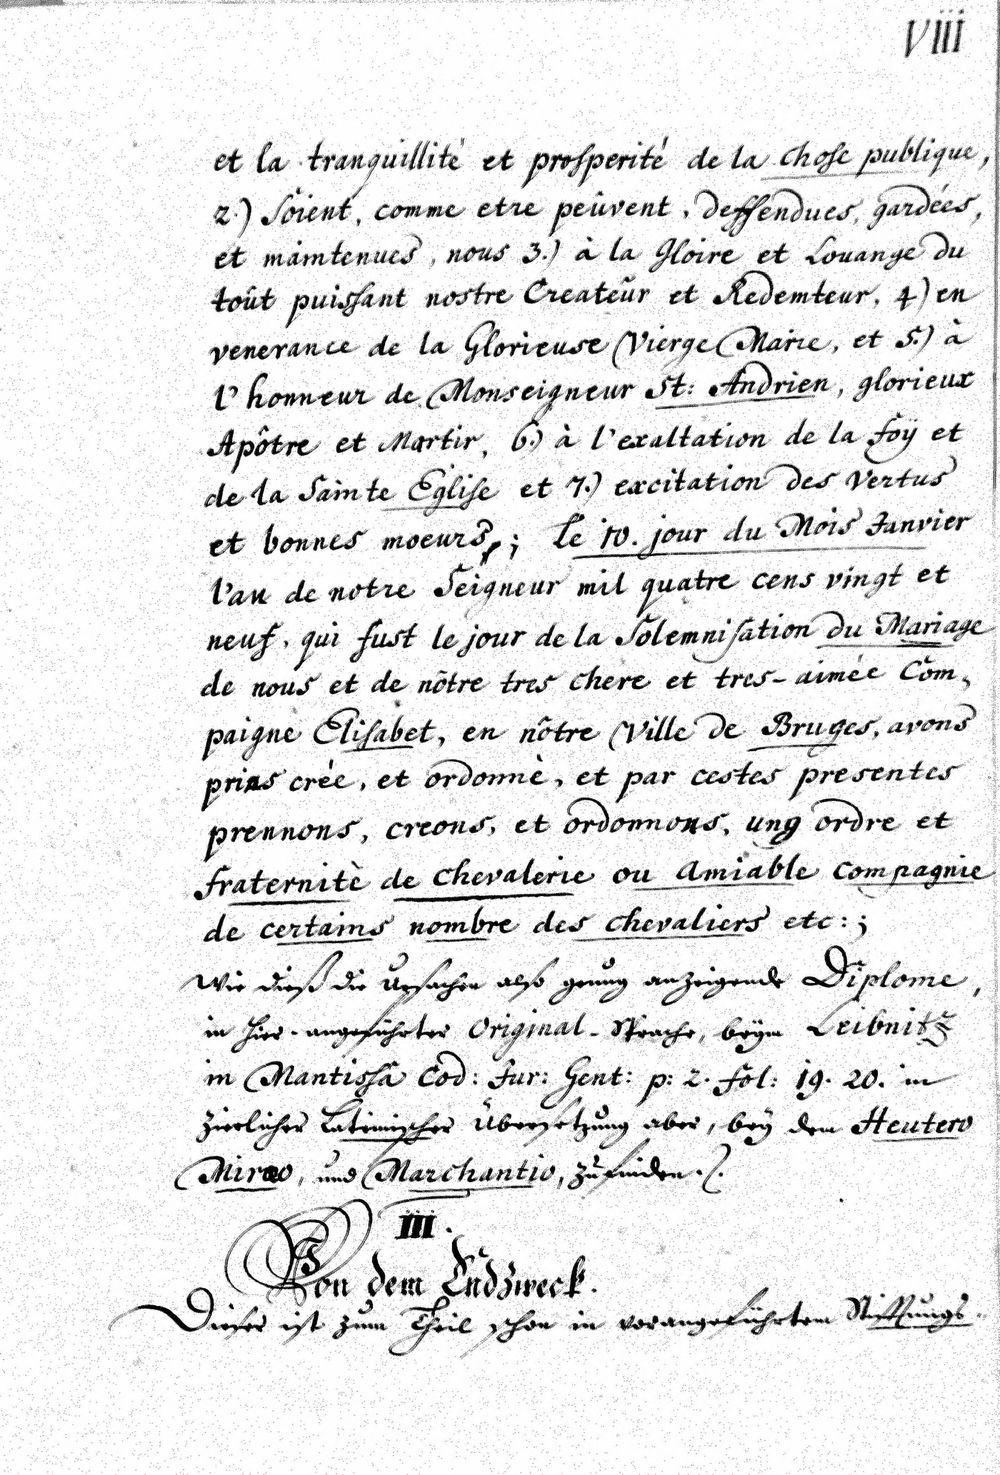 viii
et la tranquillité et prosperité de la chose publique,
2.) Soient, comme etre peûvent, deffendues, gardées,
et maintenues, nous 3.) à la Gloire et Louange du
toût puissant nostre Createûr et Redemteur, 4) en
venerance de la Glorieuse Vierge Marie, et 5.) à
l'honneur de Monseigneur St: Andrien, glorieux
Apôtre et Martir, 6.) à l'exaltation de la foÿ et
de la Sainte Eglise et 7.) excitation des Vertus
et bonnes moeurs; Le 10. jour du Mois Janvier
l'an de notre Seigneur mil quatre cens vingt et
neuf, qui fust le jour de la Solemnisation du Mariage
de nous et de nôtre tres chere et tres-aimée Com-
paigne Elisabet, en nôtre Ville de Bruges, avons
prins crée, et ordonnè, et par cestes presentes
prennons, creons, et ordonnons, ung ordre et
fraternitè de Chevalerie ou Amiable Compagnie
de certains nombre des chevaliers etc:;
Wie dieß die Ursachen also genug anzeigende Diplome,
in hier-angeführter Original-Sprache, beÿm Leibnitz
in Mantissâ Cod: Jur: Gent: p: 2. fol: 19. 20. in
zierlicher Lateinischer Übersetzung aber, beÿ dem Heutero
Miræo, und Marchantio, zu finden.
III.
Von dem Endzweck.
Dieser ist zum Theil schon in vorangeführtem Stifftungs-